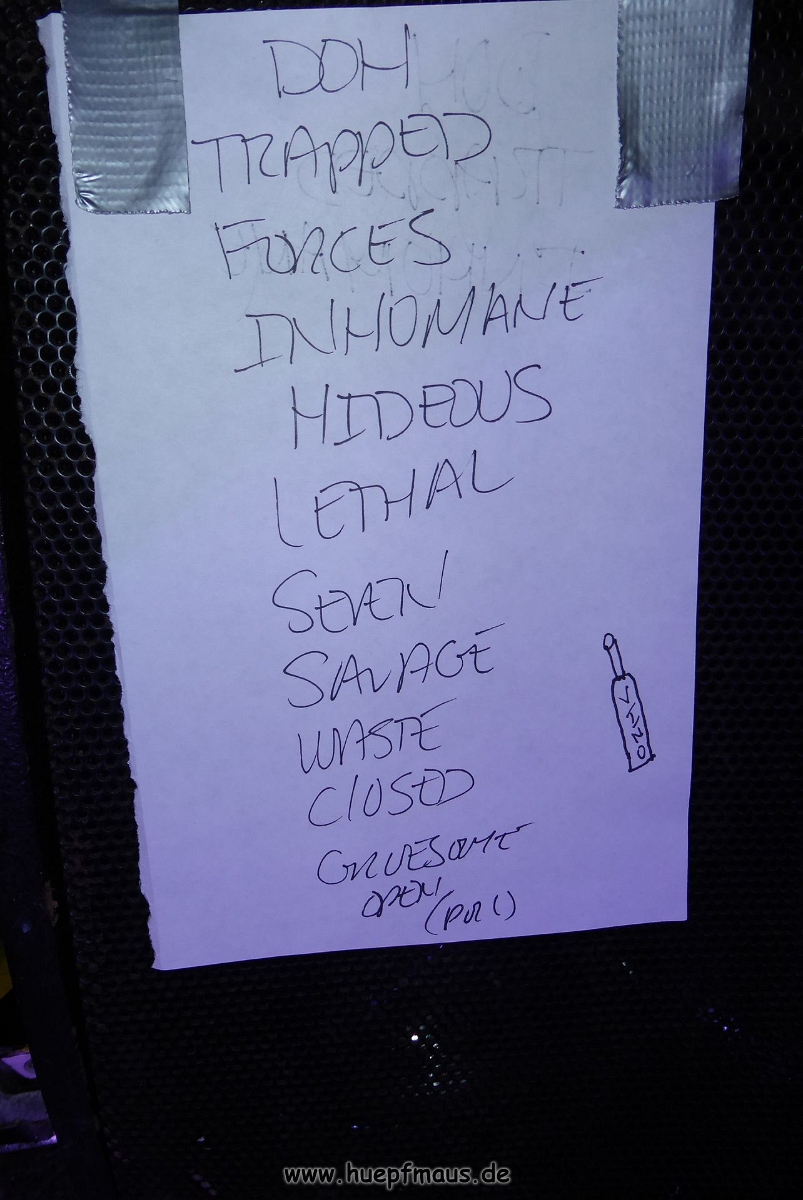 DOM
TRAPPED
FORCES
INHUMANE
HIDEOUS
LETHAL
SEVEN
SAVAGE
WASTE
CLOSED
GRUESOME
OPEN
www.huepfmaus.de